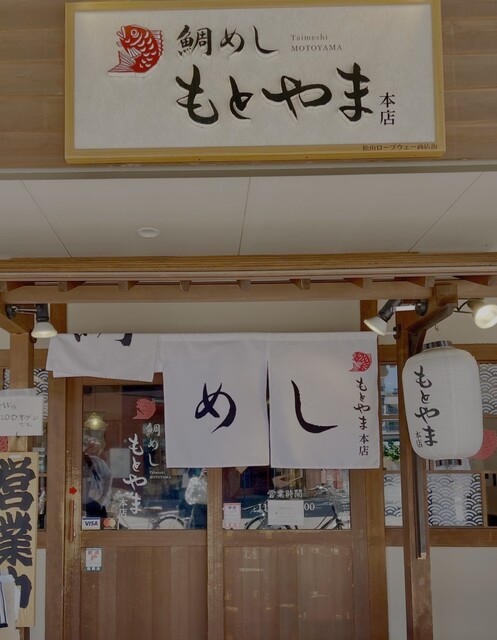 鯛めし
Taimeshi
MOTOYAMA
もとやま
本店
松山ロープウェー商店街
めし
もとやま
本店
もとやま
鯛めし
もとやま
本店
営業時間
VISA
営業中